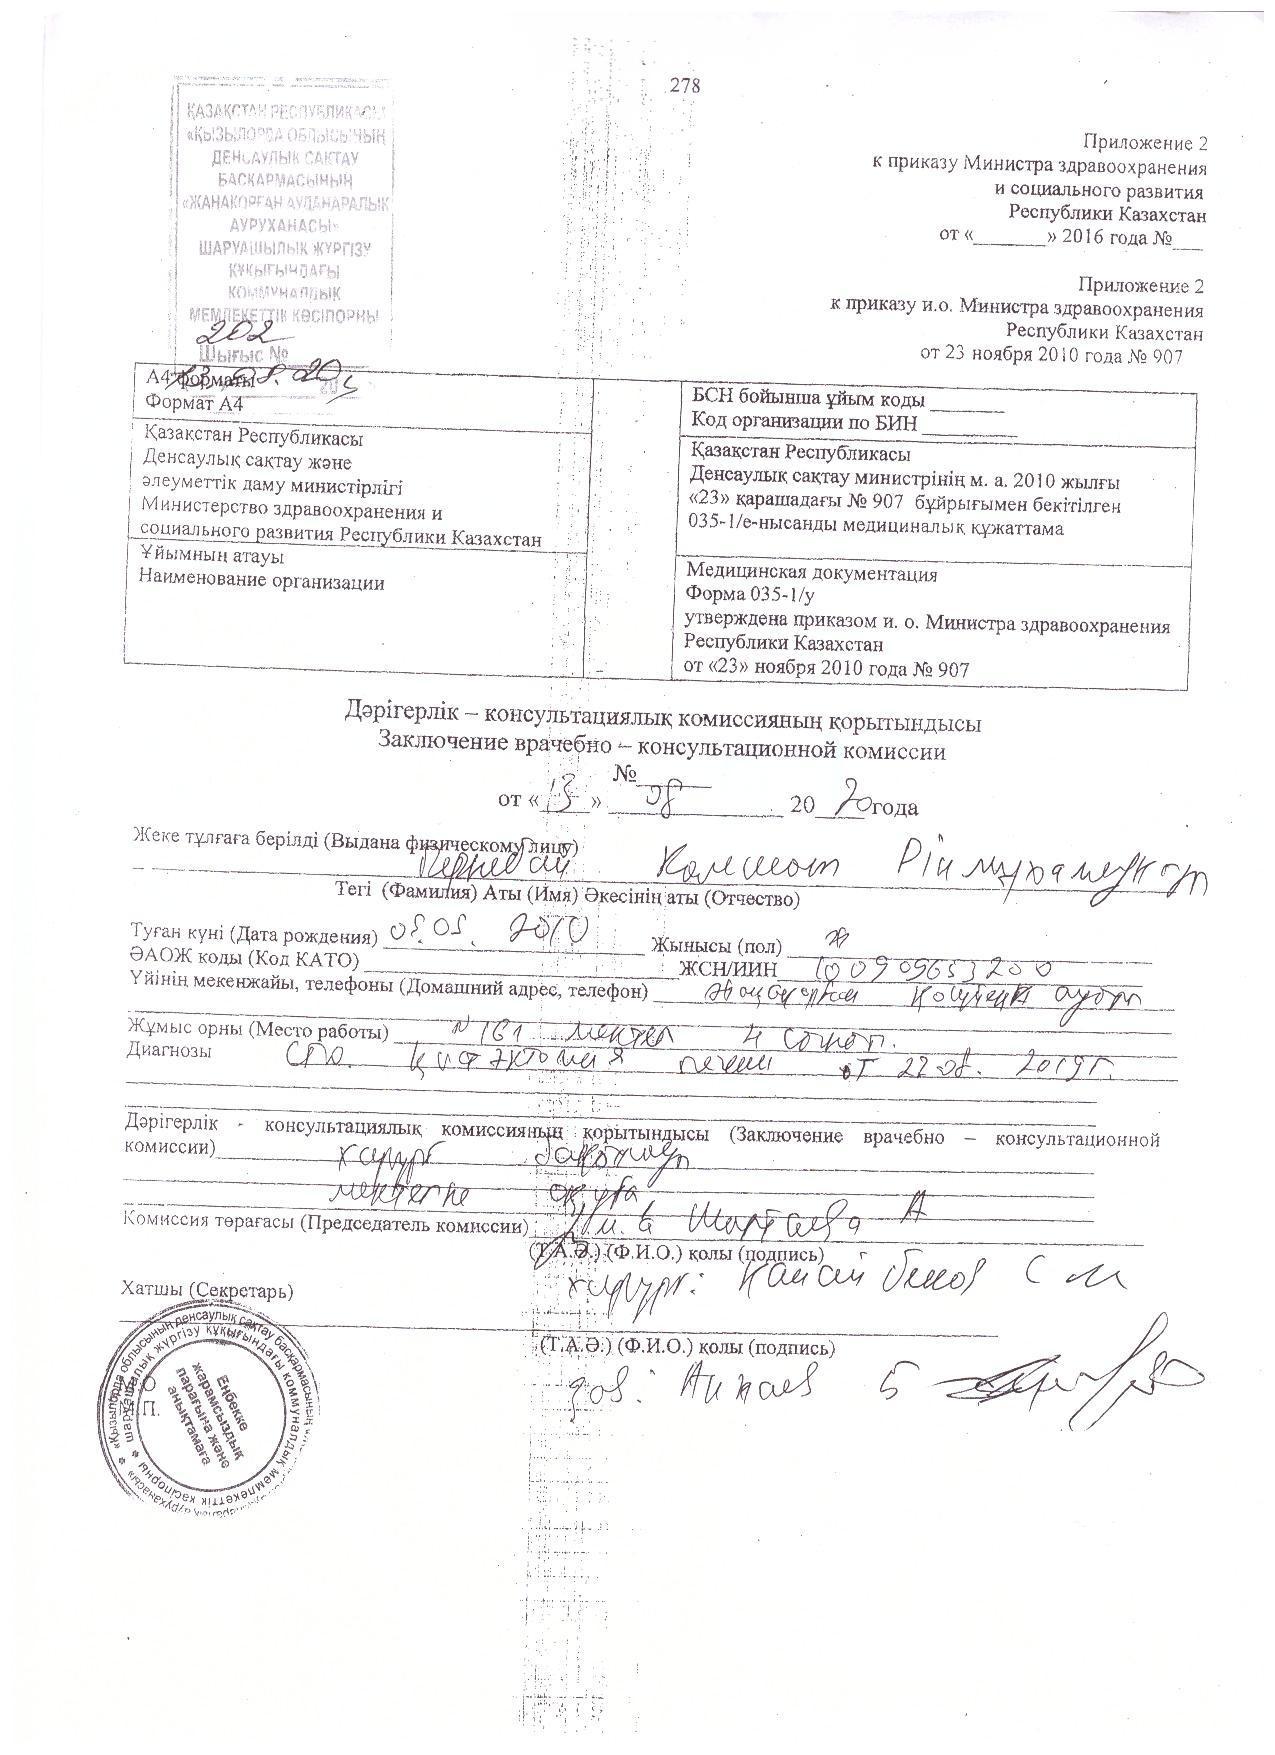 278
ҚАЗАҚСТАН РЕСПУБЛИКАСЫ
«ҚЫЗЫЛОРДА ОБЛЫСЫНЫҢ
ДЕНСАУЛЫК САКТАУ
БАСҚАРМАСЫНЫҢ
«ЖАНАКОРҒАН АУДАНАРАЛЫК
АУРУХАНАСЫ»
ШАРУАШЫЛЫК ЖҮРГІЗУ
ҚҰҚЫҒЫНДАҒЫ
КОММУНАЛДЫК
МЕМЛЕКЕТТІК КӘСІПОРНЫ
202
Шығыс №
Приложение 2
к приказу Министра здравоохранения
и социального развития
Республики Казахстан
от «_______» 2016 года №___
Приложение 2
к приказу и.о. Министра здравоохранения
Республики Казахстан
от 23 ноября 2010 года № 907
А4 форматы
Формат А4
БСН бойынша ұйым коды _______
Код организации по БИН _________
Қазақстан Республикасы
Денсаулық сақтау және
әлеуметтік даму министірлігі
Министерство здравоохранения и
социального развития Республики Казахстан
Қазақстан Республикасы
Денсаулық сақтау министрінің м. а. 2010 жылғы
«23» қарашадағы № 907 бұйрығымен бекітілген
035-1/е-нысанды медициналық құжаттама
Ұйымның атауы
Наименование организации
Медицинская документация
Форма 035-1/у
утверждена приказом и. о. Министра здравоохранения
Республики Казахстан
от «23» ноября 2010 года № 907
Дәрігерлік – консультациялық комиссияның қорытындысы
Заключение врачебно – консультационной комиссии
№______
от «13» 08 2020 года
Жеке тұлғаға берілді (Выдана физическому лицу)
Тегі (Фамилия) Аты (Имя) Әкесінің аты (Отчество)
Туған күні (Дата рождения) 2010 Жынысы (пол) ж
ӘАОЖ коды (Код КАТО) ЖСН/ИИН 100909653200
Үйінің мекенжайы, телефоны (Домашний адрес, телефон)
Жұмыс орны (Место работы) №161 мектеп 4 сынып.
Диагнозы СПО. қистэктомия печени от 22.08. 2019г.
Дәрігерлік - консультациялық комиссияның қорытындысы (Заключение врачебно – консультационной
комиссии) хирург
мектепке оқуға
Комиссия төрағасы (Председатель комиссии)
(Т.А.Ә.) (Ф.И.О.) қолы (подпись)
хирург:
Хатшы (Секретарь)
(Т.А.Ә.) (Ф.И.О.) қолы (подпись)
М.О
М.П.
Еңбекке
жарамсыздық
парағына және
анықтамаға